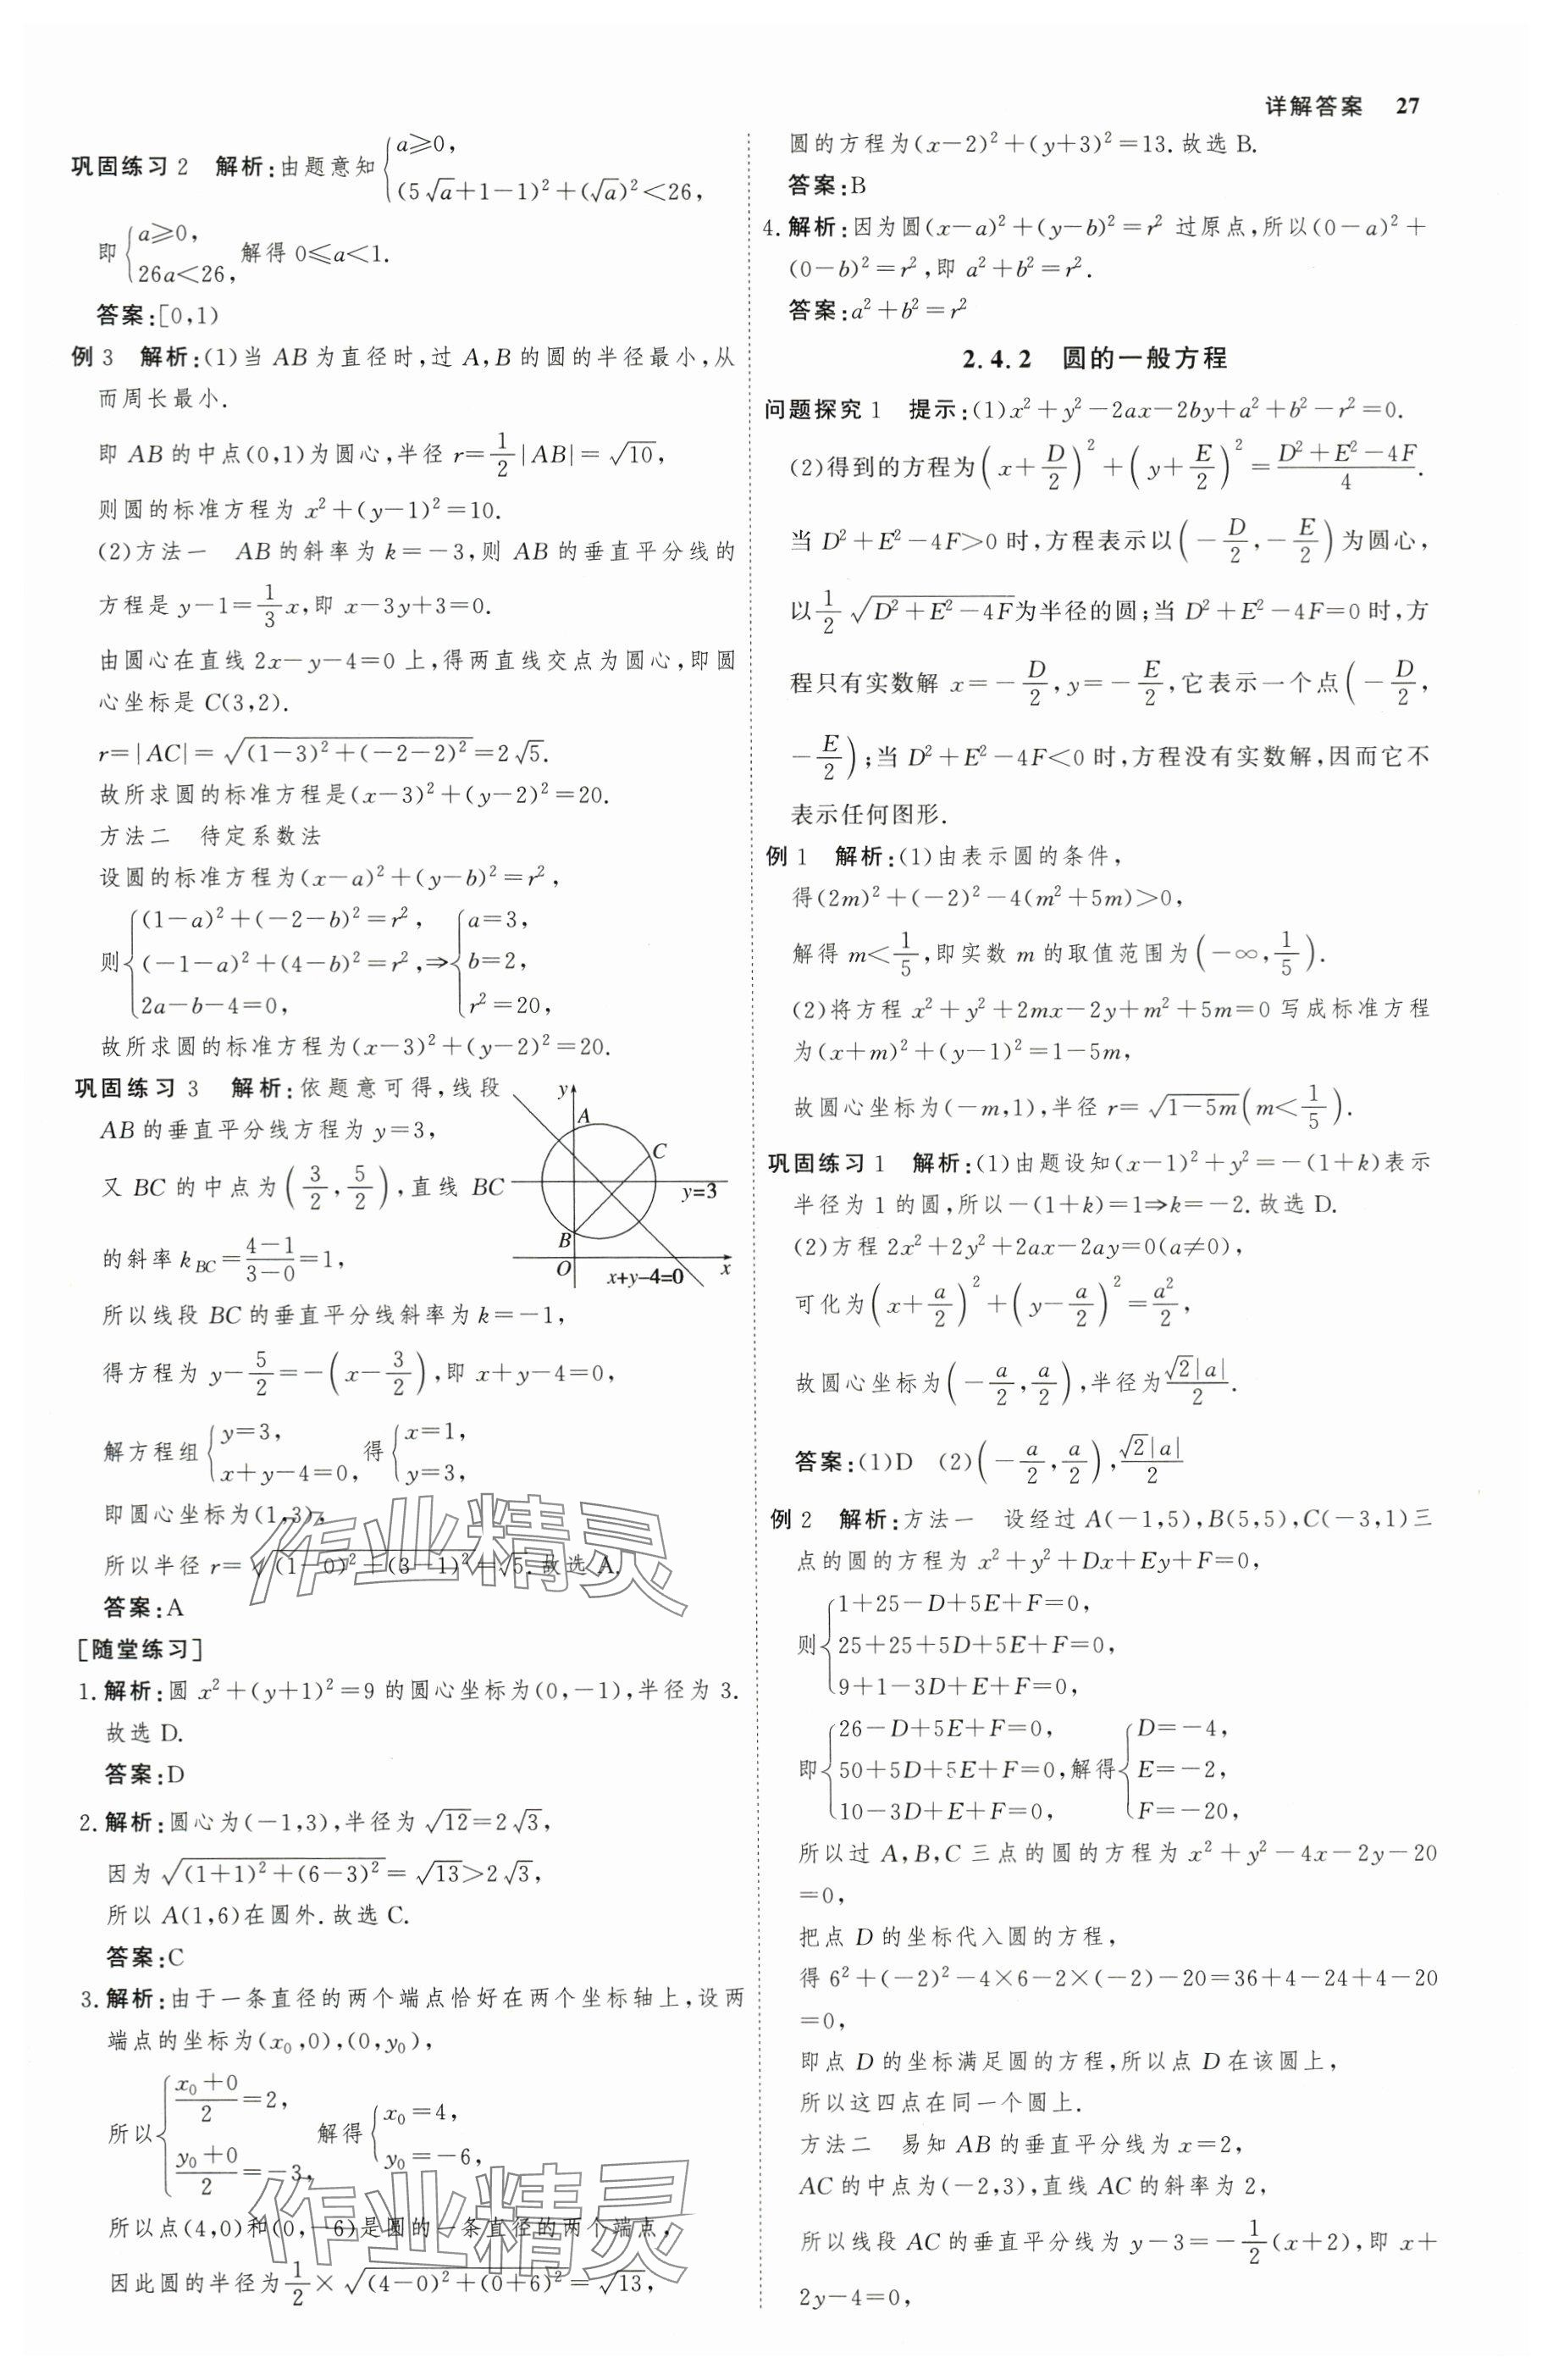 详解答案 27
巩固练习2 解析:由题意知{a≥0, (5√a+1-1)²+(√a)²<26,
即{a≥0, 26a<26, 解得 0≤a<1.
答案:[0,1)
例3 解析:(1)当 AB 为直径时,过 A,B 的圆的半径最小,从
而周长最小.
即 AB 的中点(0,1)为圆心,半径 r=1/2|AB|=√10,
则圆的标准方程为 x²+(y-1)²=10.
(2)方法一 AB 的斜率为 k=-3,则 AB 的垂直平分线的
方程是 y-1=1/3x,即 x-3y+3=0.
由圆心在直线 2x-y-4=0 上,得两直线交点为圆心,即圆
心坐标是 C(3,2).
r=|AC|=√((1-3)²+(-2-2)²)=2√5.
故所求圆的标准方程是(x-3)²+(y-2)²=20.
方法二 待定系数法
设圆的标准方程为(x-a)²+(y-b)²=r²,
则{(1-a)²+(-2-b)²=r², (-1-a)²+(4-b)²=r², 2a-b-4=0, ⇒{a=3, b=2, r²=20,
故所求圆的标准方程为(x-3)²+(y-2)²=20.
巩固练习3 解析:依题意可得,线段
AB 的垂直平分线方程为 y=3,
又 BC 的中点为(3/2,5/2),直线 BC
的斜率 k_BC=(4-1)/(3-0)=1,
y
A
C
y=3
B
O
x+y-4=0
x
所以线段 BC 的垂直平分线斜率为 k=-1,
得方程为 y-5/2=-(x-3/2),即 x+y-4=0,
解方程组{y=3, x+y-4=0, 得{x=1, y=3,
即圆心坐标为(1,3),
所以半径 r=√((1-0)²+(3-1)²)=√5.故选 A.
答案:A
[随堂练习]
1.解析:圆 x²+(y+1)²=9 的圆心坐标为(0,-1),半径为 3.
故选 D.
答案:D
2.解析:圆心为(-1,3),半径为√12=2√3,
因为√((1+1)²+(6-3)²)=√13>2√3,
所以 A(1,6)在圆外.故选 C.
答案:C
3.解析:由于一条直径的两个端点恰好在两个坐标轴上,设两
端点的坐标为(x₀,0),(0,y₀),
所以{(x₀+0)/2=2, (y₀+0)/2=-3, 解得{x₀=4, y₀=-6,
所以点(4,0)和(0,-6)是圆的一条直径的两个端点,
因此圆的半径为1/2×√((4-0)²+(0+6)²)=√13,
圆的方程为(x-2)²+(y+3)²=13.故选 B.
答案:B
4.解析:因为圆(x-a)²+(y-b)²=r² 过原点,所以(0-a)²+
(0-b)²=r²,即 a²+b²=r².
答案:a²+b²=r²
2.4.2 圆的一般方程
问题探究1 提示:(1)x²+y²-2ax-2by+a²+b²-r²=0.
(2)得到的方程为(x+D/2)²+(y+E/2)²=(D²+E²-4F)/4.
当 D²+E²-4F>0 时,方程表示以(-D/2,-E/2)为圆心,
以1/2√(D²+E²-4F)为半径的圆;当 D²+E²-4F=0 时,方
程只有实数解 x=-D/2,y=-E/2,它表示一个点(-D/2,
-E/2);当 D²+E²-4F<0 时,方程没有实数解,因而它不
表示任何图形.
例1 解析:(1)由表示圆的条件,
得(2m)²+(-2)²-4(m²+5m)>0,
解得 m<1/5,即实数 m 的取值范围为(-∞,1/5).
(2)将方程 x²+y²+2mx-2y+m²+5m=0 写成标准方程
为(x+m)²+(y-1)²=1-5m,
故圆心坐标为(-m,1),半径 r=√(1-5m)(m<1/5).
巩固练习1 解析:(1)由题设知(x-1)²+y²=-(1+k)表示
半径为 1 的圆,所以-(1+k)=1⇒k=-2.故选 D.
(2)方程 2x²+2y²+2ax-2ay=0(a≠0),
可化为(x+a/2)²+(y-a/2)²=a²/2,
故圆心坐标为(-a/2,a/2),半径为√2|a|/2.
答案:(1)D (2)(-a/2,a/2),√2|a|/2
例2 解析:方法一 设经过 A(-1,5),B(5,5),C(-3,1)三
点的圆的方程为 x²+y²+Dx+Ey+F=0,
则{1+25-D+5E+F=0, 25+25+5D+5E+F=0, 9+1-3D+E+F=0,
即{26-D+5E+F=0, 50+5D+5E+F=0, 10-3D+E+F=0, 解得{D=-4, E=-2, F=-20,
所以过 A,B,C 三点的圆的方程为 x²+y²-4x-2y-20
=0,
把点 D 的坐标代入圆的方程,
得 6²+(-2)²-4×6-2×(-2)-20=36+4-24+4-20
=0,
即点 D 的坐标满足圆的方程,所以点 D 在该圆上,
所以这四点在同一个圆上.
方法二 易知 AB 的垂直平分线为 x=2,
AC 的中点为(-2,3),直线 AC 的斜率为 2,
所以线段 AC 的垂直平分线为 y-3=-1/2(x+2),即 x+
2y-4=0,
作业精灵
作业精灵